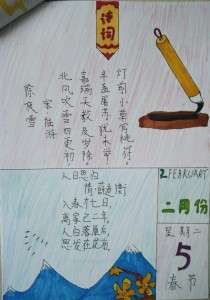 诗词
除夜雪
宋·陆游
北风吹雪四更初,
嘉瑞天教及岁除
半盏屠苏犹未举,
灯前小草写桃符。
人日思归
隋·薛道衡
入春才七日,
离家已二年。
人归落雁后,
思发在花前。
2 FEBRUARY
二月份
星期二
5
春节